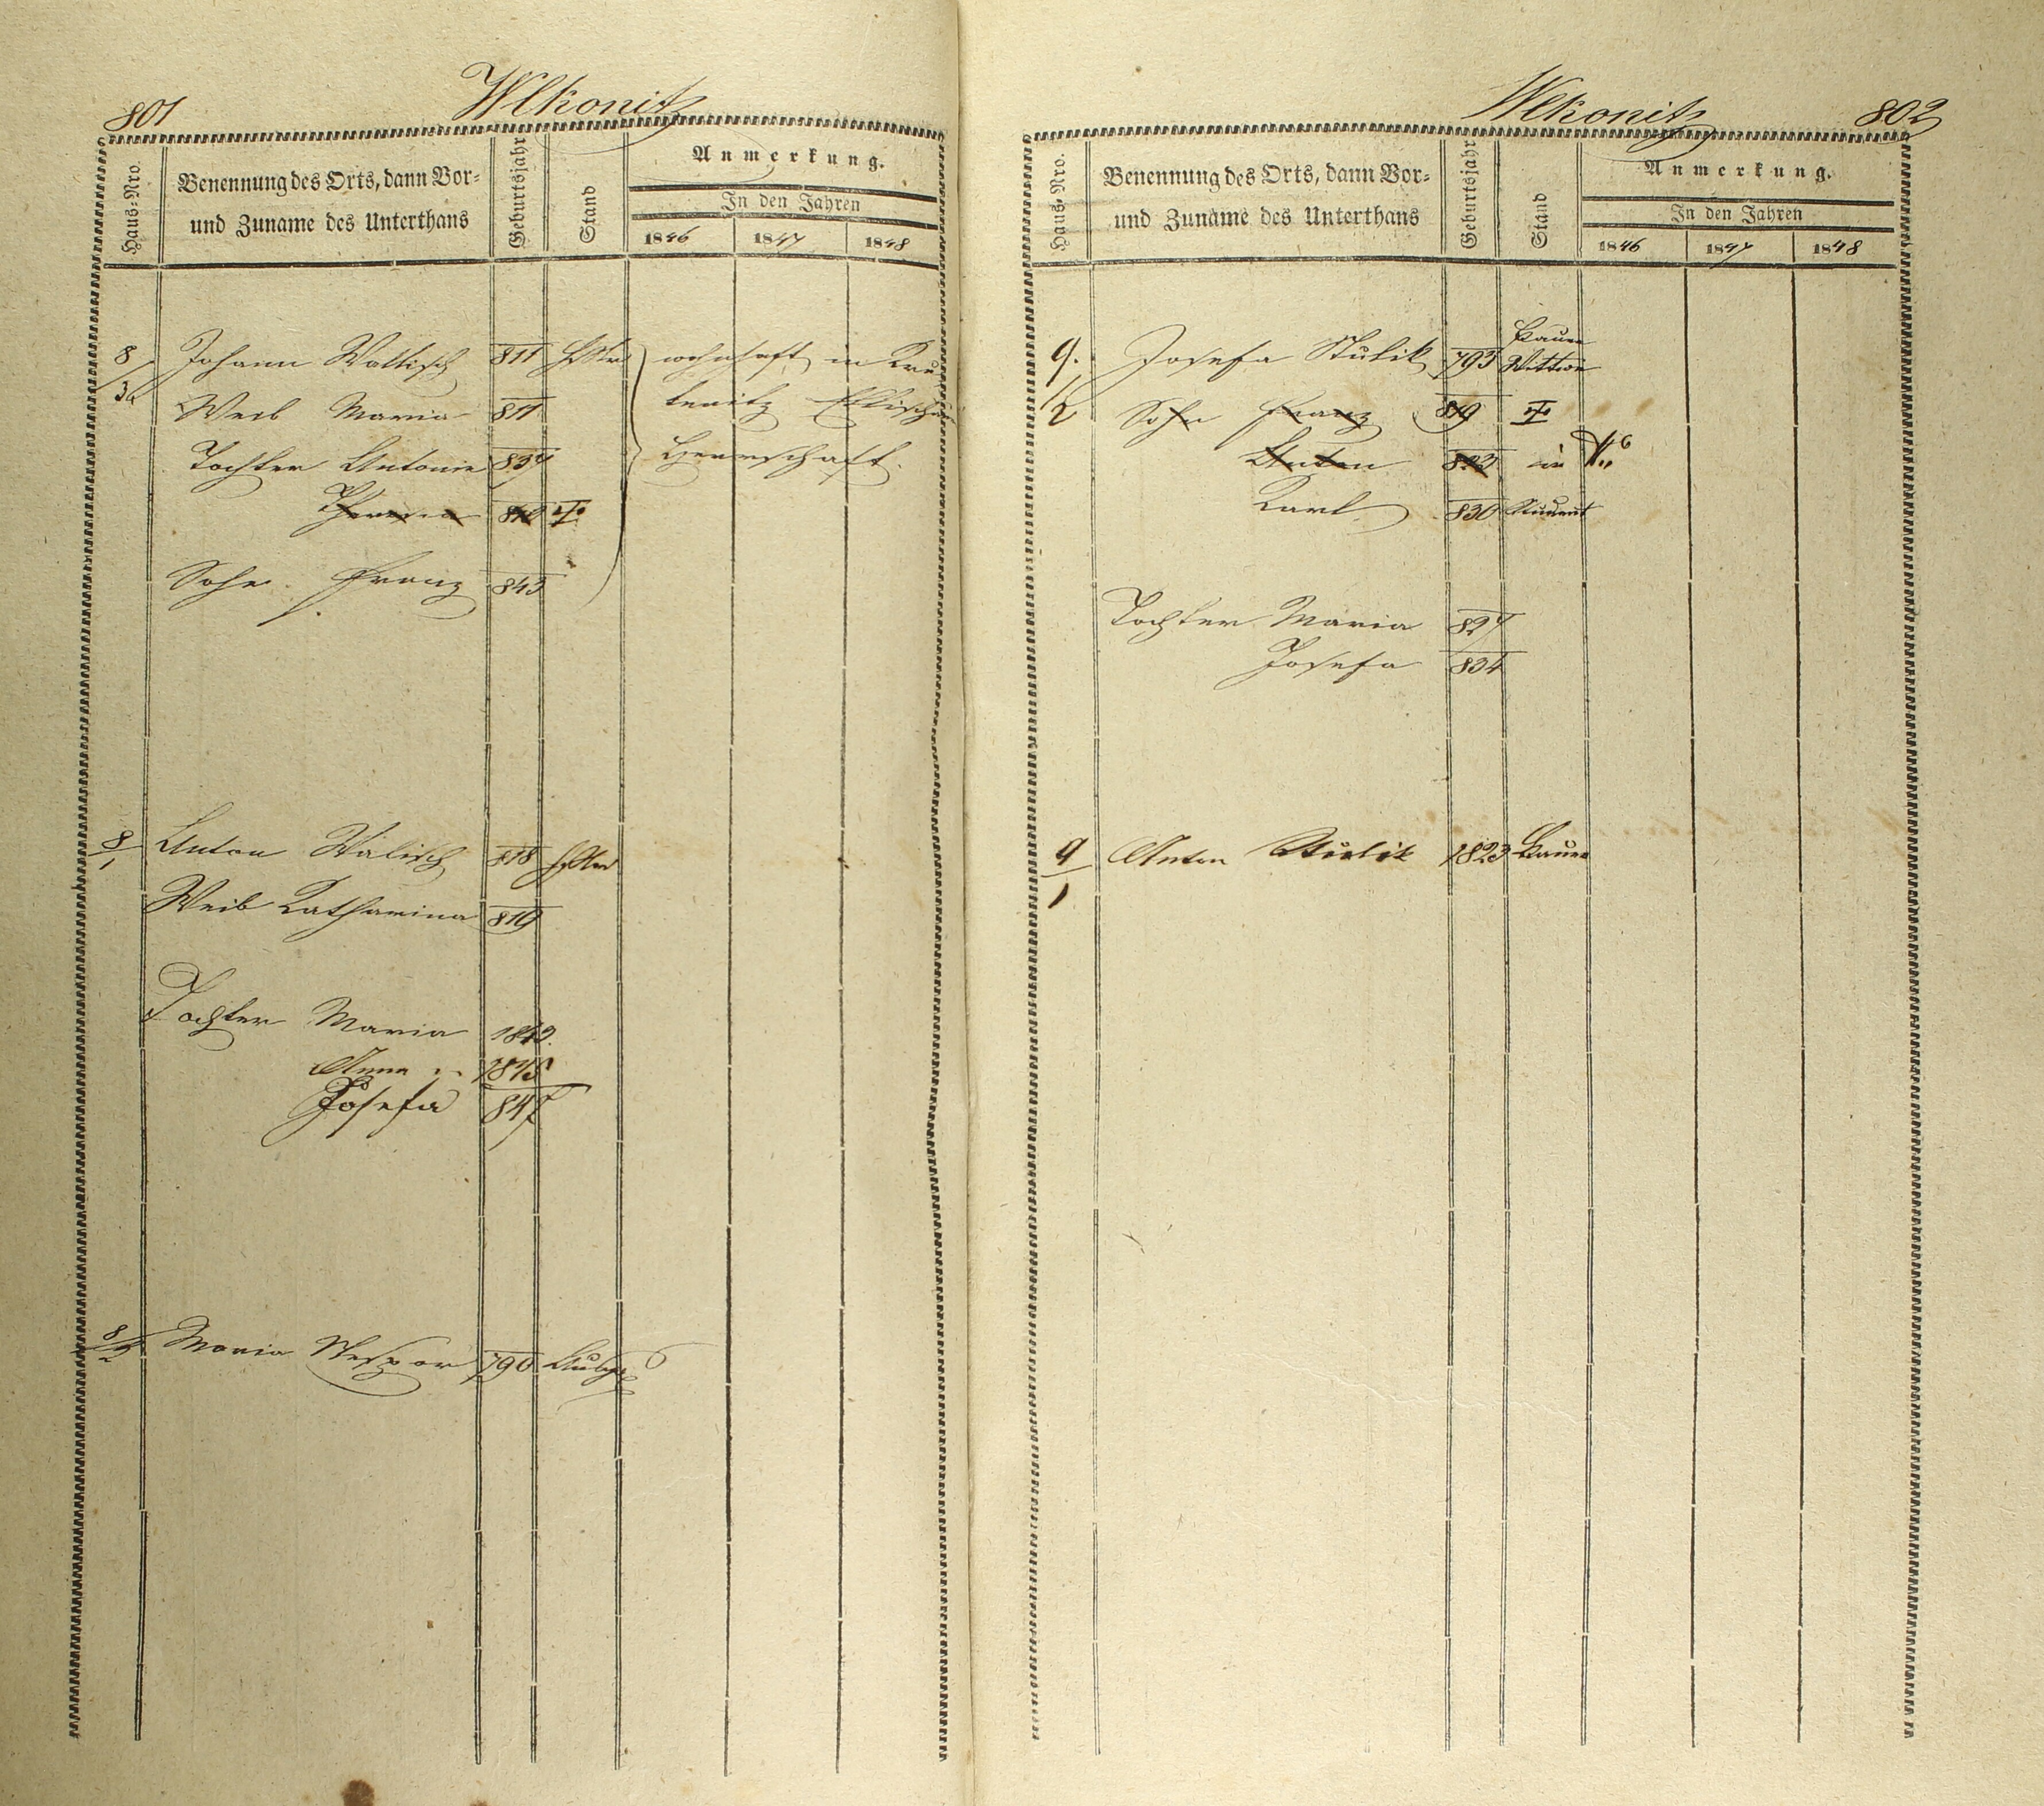 801
Wlkonitz
Haus-Nro.
Benennung des Orts, dann Vor-
und Zuname des Unterthans
Geburtsjahr
Stand
Anmerkung.
In den Jahren
1846 1847 1848
8 Johann Wallisch 811 wohnhaft in Kru
Weib Maria 811 tenitz Ellischau
Tochter Antonie 837 Herrschaft.
Theresia 840 †
Sohn Franz 843
8/1 Anton Walisch 818
Weib Katharina 819
Tochter Maria 1842.
Anna 1845
Josefa 847
8/2 Maria 790
Wlkonitz
802
Haus-Nro.
Benennung des Orts, dann Vor-
und Zuname des Unterthans
Geburtsjahr
Stand
Anmerkung.
In den Jahren
1846 1847 1848
Bauer
9. Josefa Stulik 793 Wittwe
2 Sohn Franz 819 †
Anton 823
Karl 830 Student
Tochter Maria 827
Josefa 834
9/1 Anton Stulik 1823 Bauer